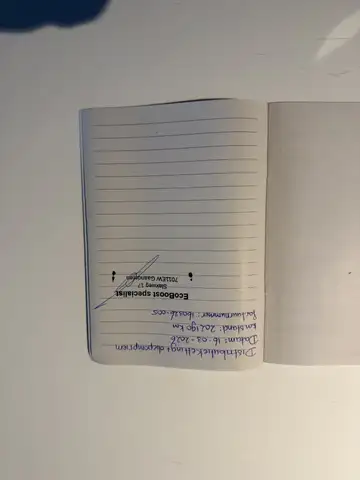 Distributieketting + oliepomp riem
Datum: 16-03-2026
km stand: 202190 km
factuurnummer: 160326-005
EcoBoost specialist
Sierweg 17
7011EW Gaanderen